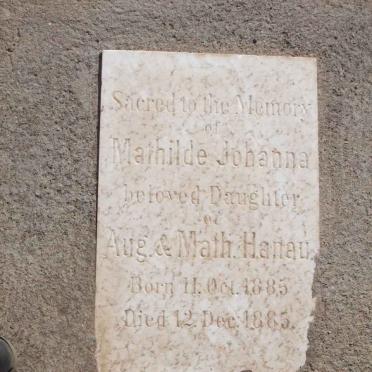 Sacred to the Memory
of
Mathilde Johanna
beloved Daughter
of
Aug. & Math. Hanau
Born 11. Oct. 1885
Died 12. Dec. 1885.